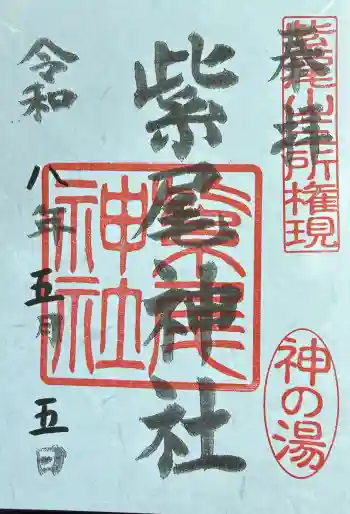 奉拝
紫尾山三所権現
神の湯
紫尾神社
紫尾神社
令和八年五月五日